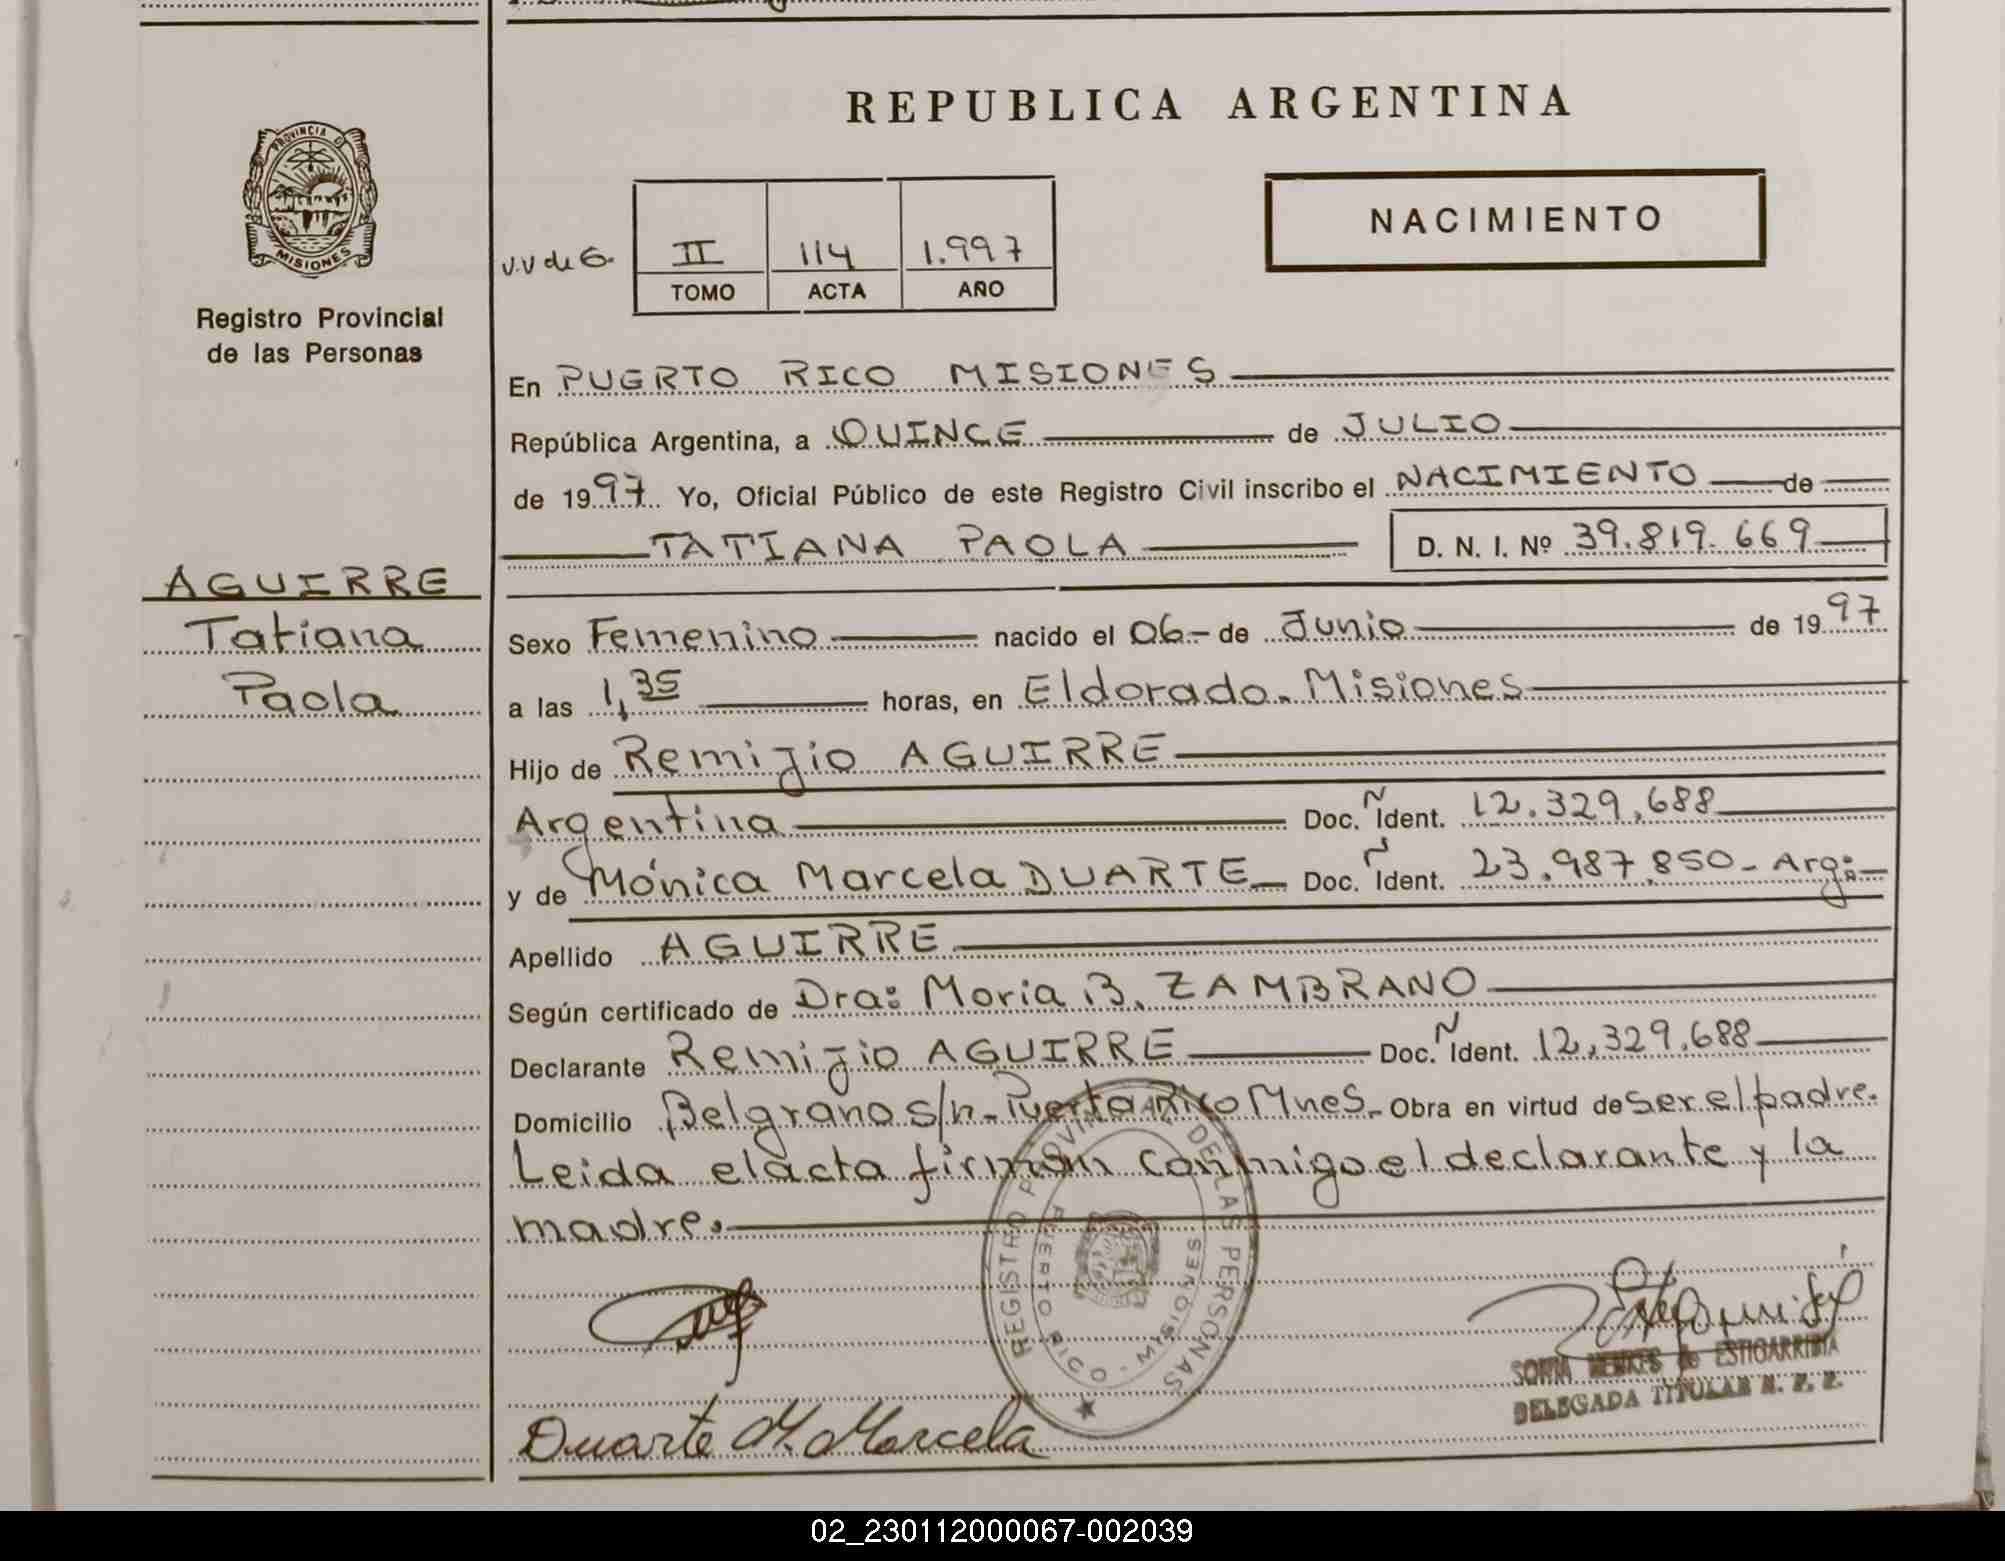 REPUBLICA ARGENTINA
PROVINCIA DE
MISIONES
Registro Provincial
de las Personas
NACIMIENTO
v.v de G.
II 114 1.997
TOMO ACTA AÑO
En PUERTO RICO MISIONES
República Argentina, a QUINCE de JULIO
de 1997. Yo, Oficial Público de este Registro Civil inscribo el NACIMIENTO de
TATIANA PAOLA D. N. I. Nº 39.819.669
AGUIRRE
Tatiana
Paola
Sexo Femenino nacido el 06- de Junio de 1997
a las 1,35 horas, en Eldorado. Misiones
Hijo de Remijio AGUIRRE
Argentina Doc. Ñ Ident. 12.329.688
y de Mónica Marcela DUARTE Doc. Ñ Ident. 23.987.850- Arg:
Apellido AGUIRRE
Según certificado de Dra: Moria B. ZAMBRANO
Declarante Remijio AGUIRRE Doc. Ñ Ident. 12.329.688
Domicilio Belgrano s/n- Puerto Rico Mnes. Obra en virtud de ser el padre.
Leida el acta firman conmigo el declarante y la
madre.
REGISTRO PROVINCIAL DE LAS PERSONAS
PUERTO RICO - MISIONES
SONIA de ESTIGARRIBIA
DELEGADA TITULAR R. P. P.
Duarte M. Marcela
02_230112000067-002039